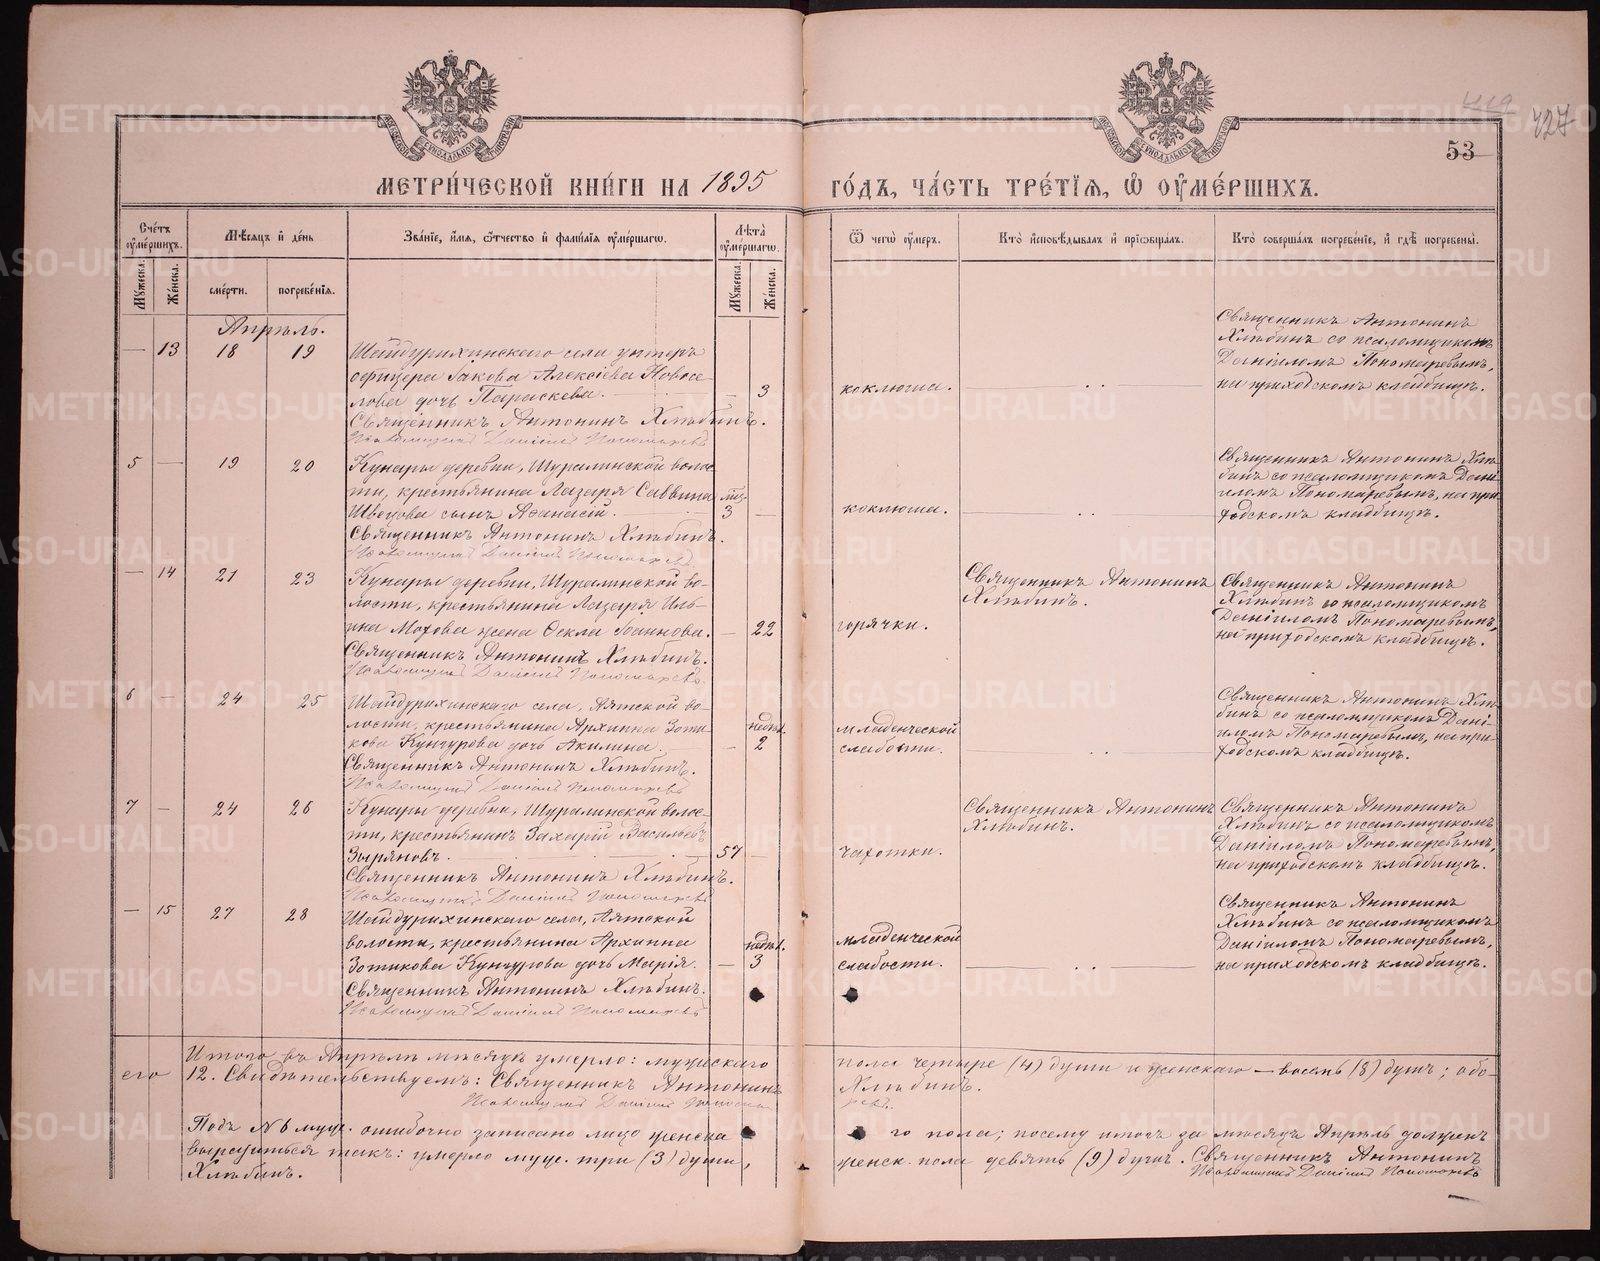 419
427
53
МЕТРИ́ЧЕСКОЙ КНИ́ГИ НА 1895 ГО́ДЪ, ЧА́СТЬ ТРЕ́ТІѦ, Ѡ ОУ҆МЕ́РШИХЪ.
Сче́тъ оу҆ме́ршихъ.
Мѣ́сяцъ и҆ де́нь
Зва́ніе, и҆́мѧ, ѻ҆́тчество и҆ фами́лїѧ оу҆ме́ршагѡ.
Лѣ́та оу҆ме́ршагѡ.
Ѿ чегѡ̀ оу҆́меръ.
Кто̀ и҆сповѣ́дывалъ и҆ прїѡбща́лъ.
Кто̀ соверша́лъ погребе́нїе, и҆ гдѣ̀ погребены̀.
Му́жеска.
Же́нска.
сме́рти.
погребе́нїѧ.
Му́жеска.
Же́нска.
Апрѣль.
— 13 18 19
Шайдурихинскаго села унтеръ
офицера Іакова Алексіева Новосе-
лова дочь Параскева. — 3
Священникъ Антонинъ Хлѣбинъ.
Псаломщикъ Даніилъ Пономаревъ
коклюша.
Священникъ Антонинъ
Хлѣбинъ со псаломщикомъ
Даніиломъ Пономаревымъ,
на приходскомъ кладбищѣ.
5 — 19 20
Кунары деревни, Шуралинской волос-
ти, крестьянина Лазаря Саввина
Швецова сынъ Аѳанасій. 3 —
Священникъ Антонинъ Хлѣбинъ.
Псаломщикъ Даніилъ Пономаревъ
коклюша.
Священникъ Антонинъ Хлѣ-
бинъ со псаломщикомъ Дані-
иломъ Пономаревымъ, на при-
ходскомъ кладбищѣ.
— 14 21 23
Кунары деревни, Шуралинской во-
лости, крестьянина Лазаря Иль-
ина Мохова жена Ѳекла Іоаннова. — 22
Священникъ Антонинъ Хлѣбинъ.
Псаломщикъ Даніилъ Пономаревъ
горячки.
Священникъ Антонинъ
Хлѣбинъ.
Священникъ Антонинъ
Хлѣбинъ со псаломщикомъ
Даніиломъ Пономаревымъ,
на приходскомъ кладбищѣ.
6 — 24 25
Шайдурихинскаго села, Аятской во-
лости, крестьянина Архиппа Зоти-
кова Кунгурова дочь Акилина. — недѣл. 2
Священникъ Антонинъ Хлѣбинъ.
Псаломщикъ Даніилъ Пономаревъ
младенческой
слабости.
Священникъ Антонинъ Хлѣ-
бинъ со псаломщикомъ Дані-
иломъ Пономаревымъ, на при-
ходскомъ кладбищѣ.
7 — 24 26
Кунары деревни, Шуралинской волос-
ти, крестьянинъ Захарій Васильевъ
Зыряновъ. 57 —
Священникъ Антонинъ Хлѣбинъ.
Псаломщикъ Даніилъ Пономаревъ
чахотки.
Священникъ Антонинъ
Хлѣбинъ.
Священникъ Антонинъ
Хлѣбинъ со псаломщикомъ
Даніиломъ Пономаревымъ,
на приходскомъ кладбищѣ.
— 15 27 28
Шайдурихинскаго села, Аятской
волости, крестьянина Архиппа
Зотикова Кунгурова дочь Марія. — недѣл. 3
Священникъ Антонинъ Хлѣбинъ.
Псаломщикъ Даніилъ Пономаревъ
младенческой
слабости.
Священникъ Антонинъ
Хлѣбинъ со псаломщикомъ
Даніиломъ Пономаревымъ,
на приходскомъ кладбищѣ.
Итого въ Апрѣлѣ мѣсяцѣ умерло: мужескаго пола четыре (4) души и женскаго — восемь (8) душъ; обо-
его 12. Свидѣтельствуемъ: Священникъ Антонинъ Хлѣбинъ.
Псаломщикъ Даніилъ Пономаревъ.
Подъ №6 муж. ошибочно записано лицо женскаго пола; посему итогъ за мѣсяцъ Апрѣль долженъ
выразиться такъ: умерло муж. три (3) души, женск. пола девять (9) душъ. Священникъ Антонинъ
Хлѣбинъ. Псаломщикъ Даніилъ Пономаревъ
METRIKI.GASO-URAL.RU